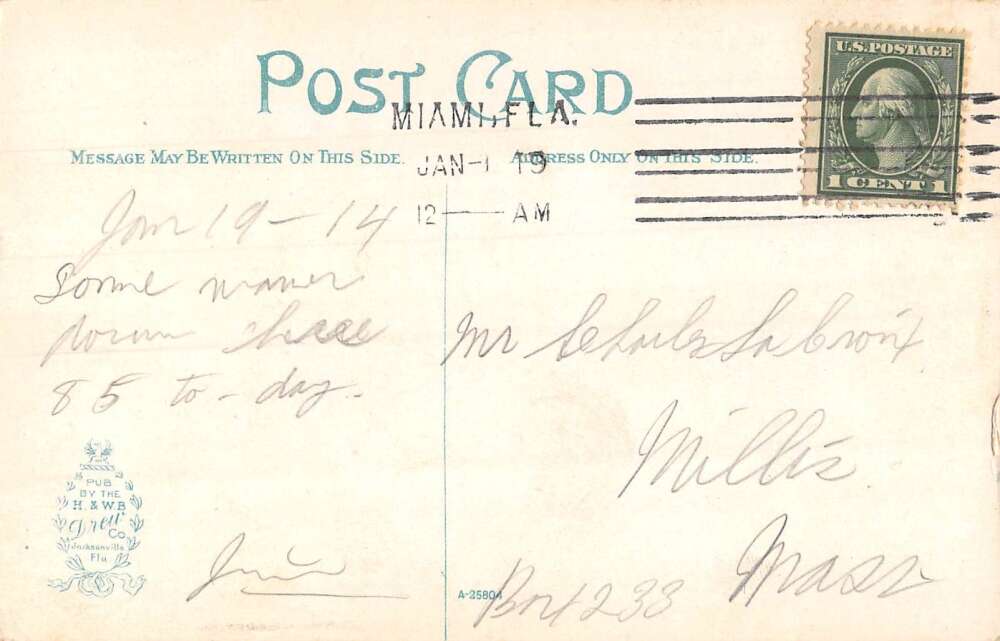 POST CARD
MIAMI, FLA.
JAN-1 19
12 — AM
U.S. POSTAGE
1 CENT 1
MESSAGE MAY BE WRITTEN ON THIS SIDE.
ADDRESS ONLY ON THIS SIDE.
Jan 19-14
Some
down
85 to-day.
Mr Charles LaCroix
Millis
Mass
Box 233
PUB
BY THE
H. & W.B
Drew
Co
Jacksonville
Fla
A-25804